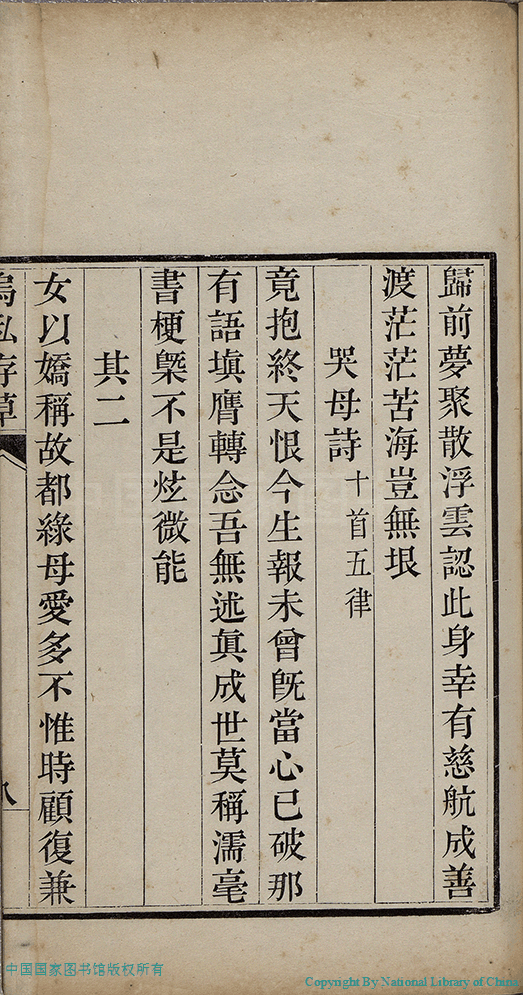 歸前夢聚散浮雲認此身幸有慈航成善
渡茫茫苦海豈無垠
哭母詩十首五律
竟抱終天恨今生報未曾旣當心已破那
有語塡膺轉念吾無述眞成世莫稱濡毫
書梗槩不是炫微能
其二
女以嬌稱故都緣母愛多不惟時顧復兼
烏私存草
八
中国国家图书馆版权所有
Copyright By National Library of China